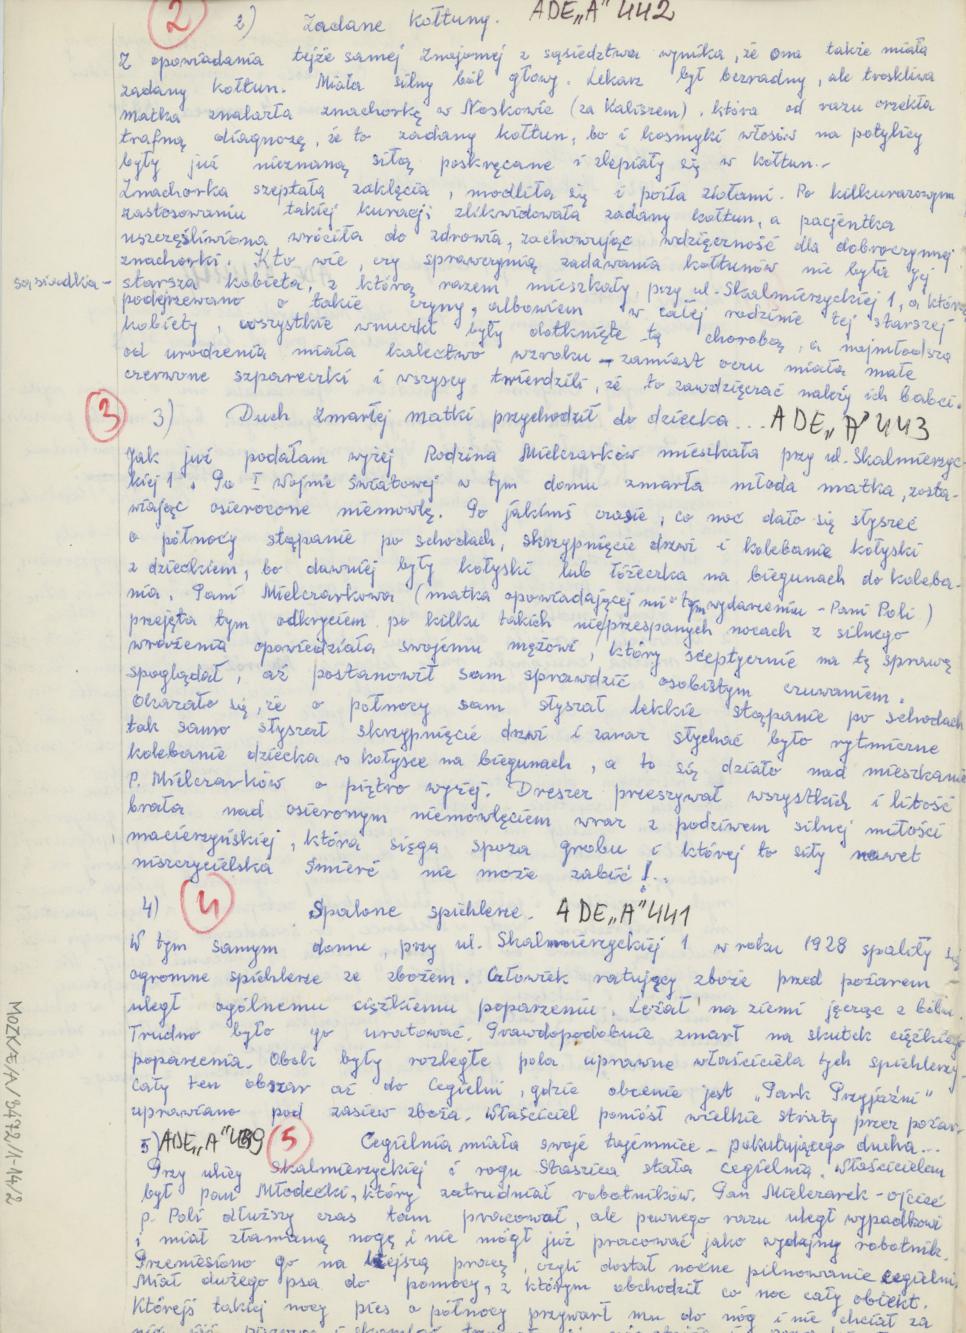 2 2) Zadane kołtuny. ADE„A" 442
Z opowiadania tejże samej znajomej z sąsiedztwa wynika, że ona także miała
zadany kołtun. Miała silny ból głowy. Lekarz był bezradny, ale troskliwa
matka znalazła znachorkę w Noskowie (za Kaliszem), która od razu orzekła
trafną diagnozę, że to zadany kołtun, bo i kosmyki włosów na potylicy
były już nieznaną siłą poskręcane i zlepiały się w kołtun.-
Znachorka szeptała zaklęcia, modliła się i poiła ziołami. Po kilkurazowym
zastosowaniu takiej kuracji zlikwidowała zadany kołtun, a pacjentka
uszczęśliwiona wróciła do zdrowia, zachowując wdzięczność dla dobroczynnej
znachorki. Kto wie, czy sprawczynią zadawania kołtunów nie była jej
sąsiadka - starsza kobieta, z którą razem mieszkały przy ul. Skalmierzyckiej 1, a którą
podejrzewano o takie czyny, albowiem w całej rodzinie tej starszej
kobiety, wszystkie wnuczki były dotknięte tą chorobą, a najmłodsza
od urodzenia miała kalectwo wzroku - zamiast oczu miała małe
czerwone szpareczki i wszyscy twierdzili, że to zawdzięczać należy ich babci.
3 3) Duch zmarłej matki przychodził do dziecka... ADE„A" 443
Jak już podałam wyżej Rodzina Mielcarków mieszkała przy ul. Skalmierzyc-
kiej 1. Po I wojnie światowej w tym domu zmarła młoda matka, zosta-
wiając osierocone niemowlę. Po jakimś czasie, co noc dało się słyszeć
o północy stąpanie po schodach, skrzypnięcie drzwi i kolebanie kołyski
z dzieckiem, bo dawniej były kołyski lub łóżeczka na biegunach do koleba-
nia. Pani Mielczarkowa (matka opowiadającej mi o tym wydarzeniu - Pani Poli)
przejęta tym odkryciem po kilku takich nieprzespanych nocach z silnego
wrażenia opowiedziała swojemu mężowi, który sceptycznie na tę sprawę
spoglądał, aż postanowił sam sprawdzić osobistym czuwaniem.
Okazało się, że o północy sam słyszał lekkie stąpanie po schodach
tak samo słyszał skrzypnięcie drzwi i zaraz słychać było rytmiczne
kolebanie dziecka w kołysce na biegunach, a to się działo nad mieszkanie
P. Mielczarków o piętro wyżej. Dreszcz przeszywał wszystkich i litość
brała nad osieronym niemowlęciem wraz z podziwem silnej miłości
macierzyńskiej, która sięga spoza grobu i której to siły nawet
niszczycielska śmierć nie może zabić!..
4) 4 Spalone spichlerze. ADE„A" 441
W tym samym domu, przy ul. Skalmierzyckiej 1 w roku 1928 spaliły się
ogromne spichlerze ze zbożem. Człowiek ratujący zboże przed pożarem
uległ ogólnemu ciężkiemu poparzeniu. Leżał na ziemi jęcząc z bólu.
Trudno było go uratować. Prawdopodobnie zmarł na skutek ciężkiego
poparzenia. Obok były rozległe pola uprawne właściciela tych spichlerzy-
cały ten obszar aż do Cegielni, gdzie obecnie jest „Park Przyjaźni"
uprawiano pod zasiew zboża. Właściciel poniósł wielkie straty przez pożar.
5) ADE„A" 439 5 Cegielnia miała swoje tajemnice - pokutującego ducha...
Przy ulicy Skalmierzyckiej i rogu Staszica stała cegielnia. Właścicielem
był pan Młodecki, który zatrudniał robotników. Pan Mielczarek - ojciec
p. Poli dłuższy czas tam pracował, ale pewnego razu uległ wypadkowi
i miał złamaną nogę i nie mógł już pracować jako wydajny robotnik.
Przeniesiono go na lżejszą pracę, czyli dostał nocne pilnowanie cegielni.
Miał dużego psa do pomocy, z którym obchodził co noc cały obiekt.
Którejś takiej nocy pies o północy przywarł mu do nóg i nie chciał za
MOZK/E/A/3472/1-14/2